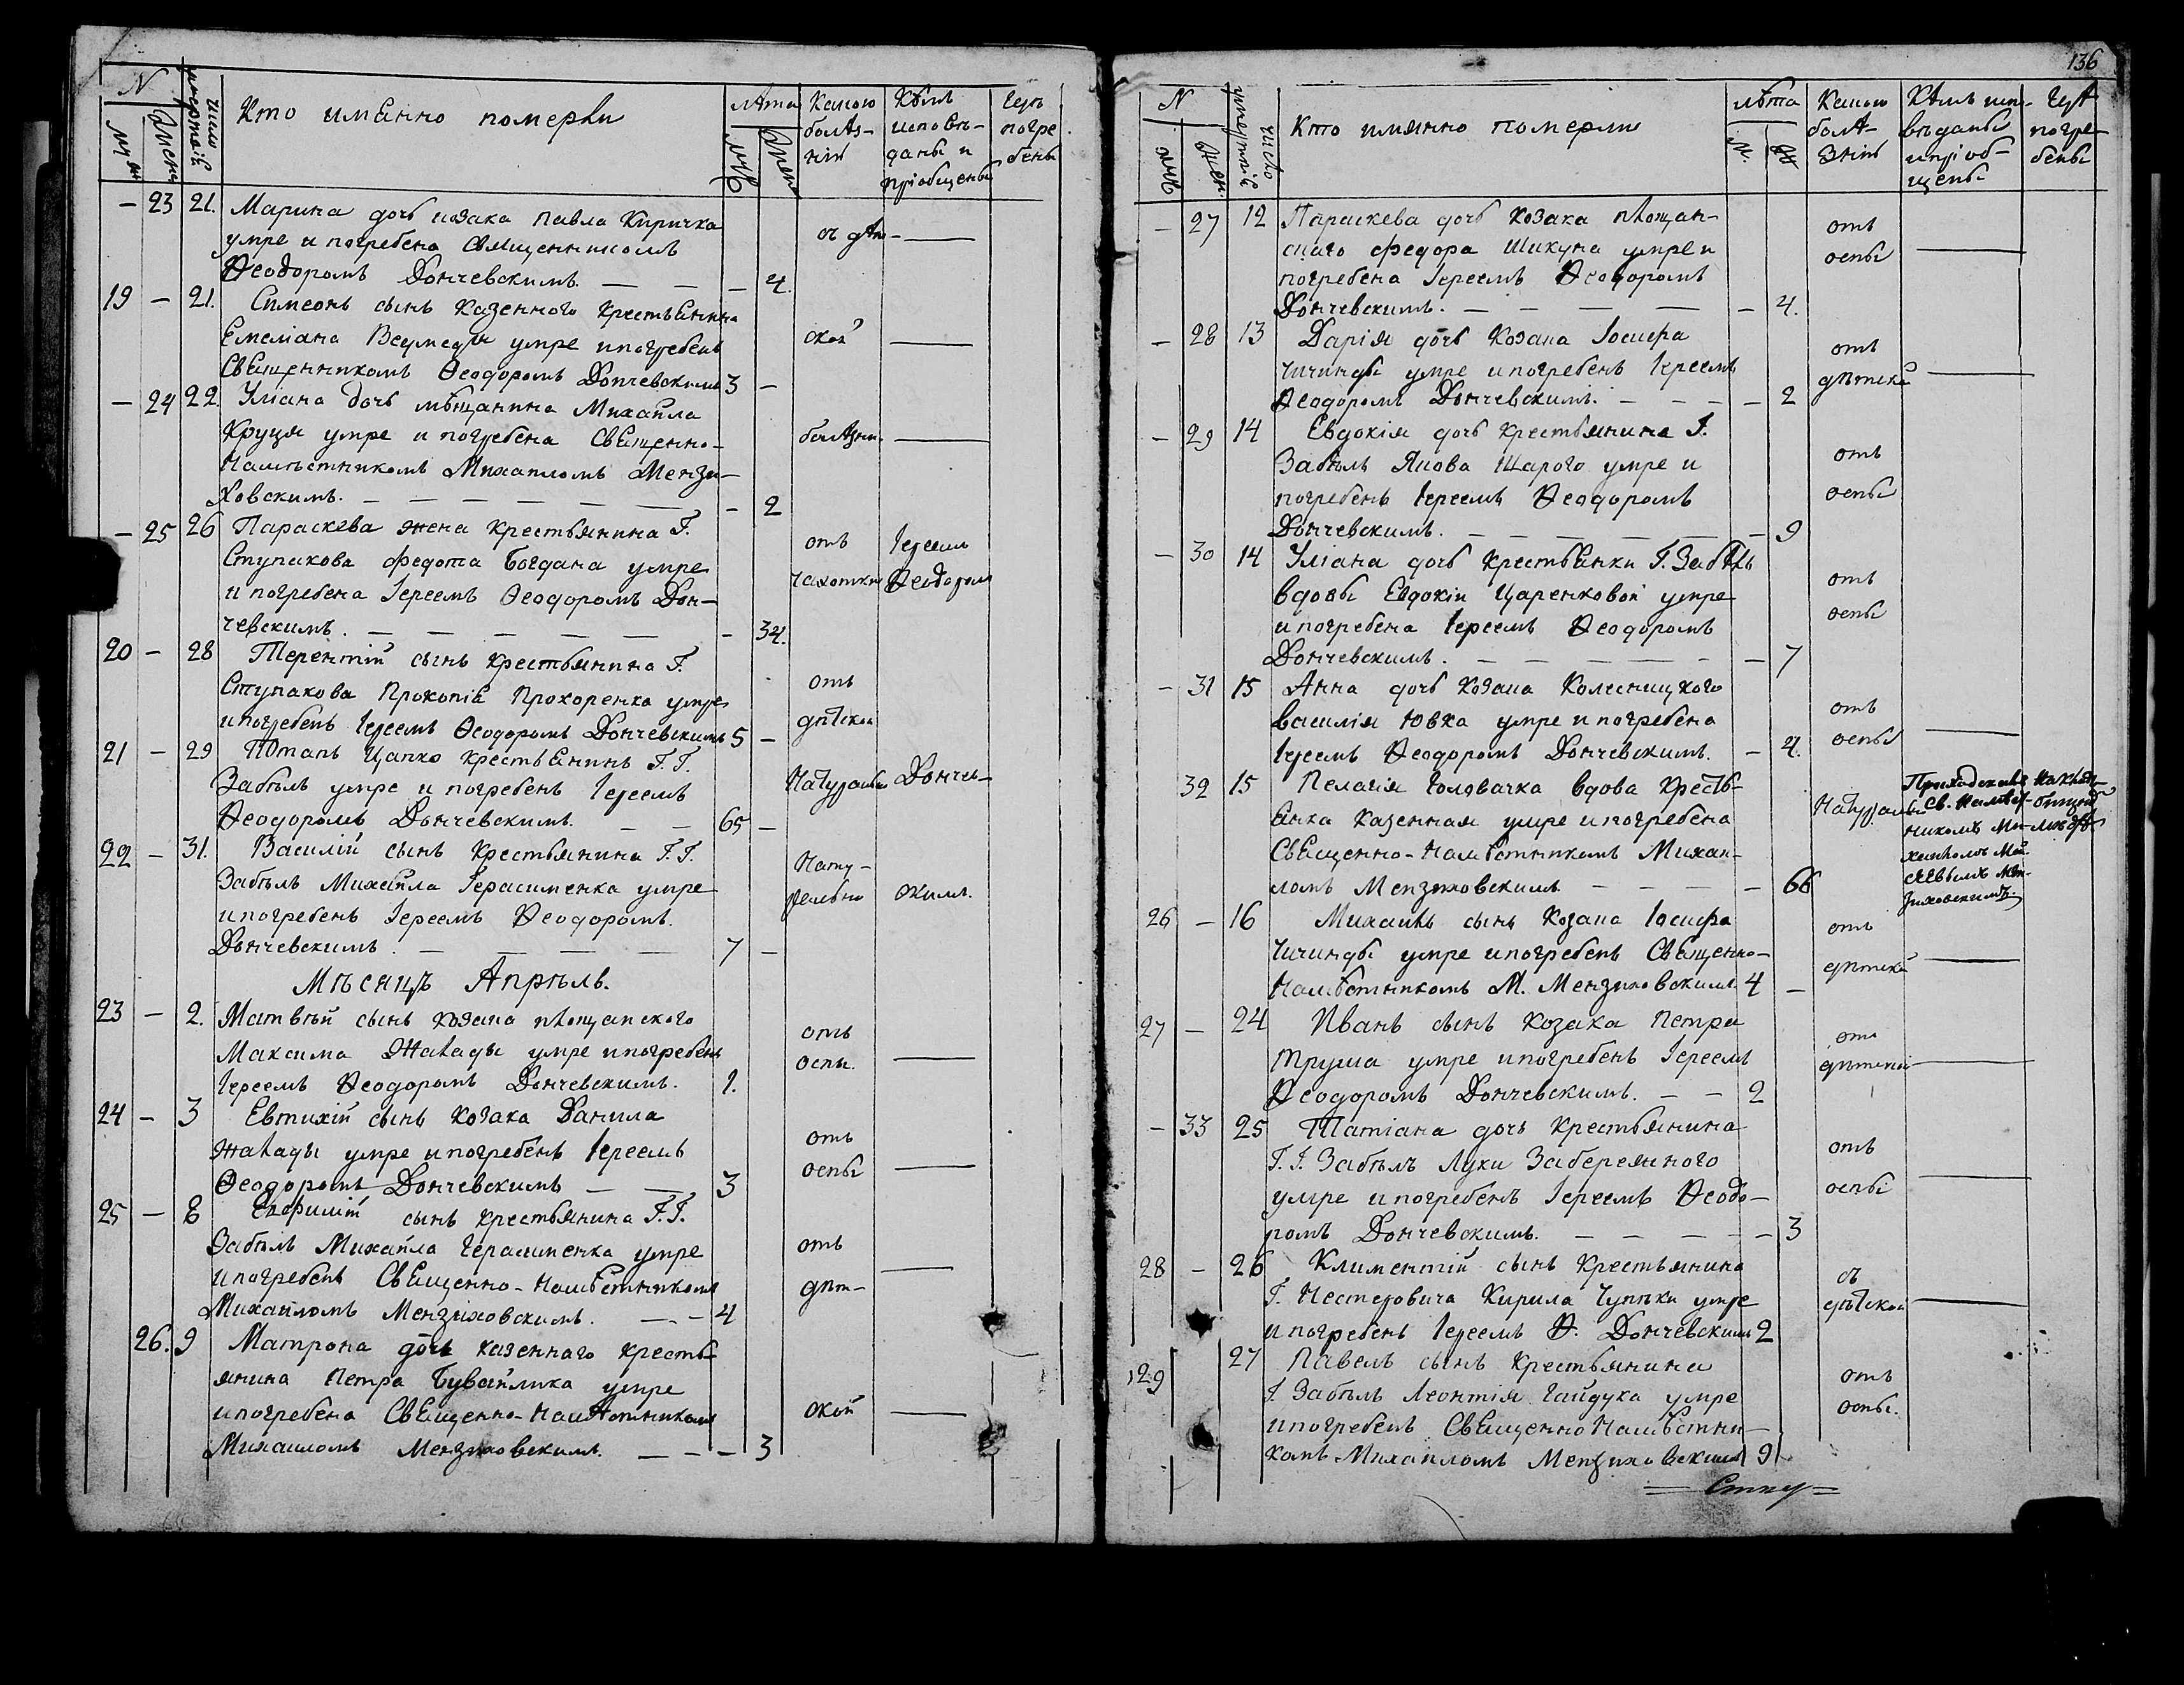 N
муж
женъ
число умертвій
Кто имѧнно померли
лѣта
муж
жен
Какою болѣз-
нію
Кѣмъ исповѣ-
даны и
пріобщены
Гдѣ погре
бены
— 23 21. Марина дочь козака Павла Киричка
умре и погребена священникомъ
Ѳеодоромъ Дончевскимъ. — — — 4.
съ дѣт- —
19 — 21. Симеонъ сынъ казенного крестьѧнина
Емеліана Ведмедѧ умре и погребенъ
Свѧщенникомъ Ѳеодоромъ Дончевскимъ 3 —
ской —
— 24 22. Уліана дочь мѣщанина Михайла
Круця умре и погребена Свѧщенно-
Намѣстникомъ Михаиломъ Мензи-
ховскимъ. — — — — — — — 2
болѣзни. —
— 25 26 Параскева жена крестьянина Г.
Ступакова Федота Богдана умре
и погребена Іереемъ Ѳеодоромъ Дон-
чевскимъ. — — — — — — 34.
отъ
чахотки
Іереемъ
Ѳеодоромъ
20 — 28 Терентій сынъ крестьянина Г.
Ступакова Прокопіѧ Прохоренка умре
и погребенъ Іереемъ Ѳеодоромъ Дончевскимъ 5 —
отъ
дѣтской
21 — 29 Потапъ Цапко крестьѧнинъ Г. Г.
Забѣлъ умре и погребенъ Іереемъ
Ѳеодоромъ Дончевскимъ. — — 65 —
Натурально
Дончев-
22 — 31. Василій сынъ крестьянина Г. Г.
Забѣлъ Михайла Герасименка умре
и погребенъ Іереемъ Ѳеодоромъ.
Дончевскимъ. — — — — — 7 —
Нату-
рально
скимъ.
Мѣсяцъ Апрѣль.
23 — 2. Матвѣй сынъ козака
Максима умре и погребенъ
Іереемъ Ѳеодоромъ Дончевскимъ. 1.
отъ
оспы. —
24 — 3 Евтихій сынъ козака Данила
умре и погребенъ Іереемъ
Ѳеодоромъ Дончевскимъ — — 3
отъ
оспы —
25 — 8 сынъ крестьянина Г. Г.
Забѣлъ Михайла Герасименка умре
и погребенъ Свѧщенно-Намѣстникомъ
Михаиломъ Мензиховскимъ. — — 4
отъ
дѣт- —
26. 9 Матрона дочь казенного кресть-
янина Петра Бувайлика умре
и погребена Свѧщенно-Намѣстникомъ
Михаиломъ Мензиховскимъ. — — — 3
ской —
136
N
число умертвій
Кто имянно померли
лѣта
М.
Ж
Какою
болѣ-
знію
Кѣмъ испо-
вѣданы
и пріоб-
щены
Гдѣ
погре-
бены
— 27 12 Параскева дочь козака
Федора Шикуна умре и
погребена Іереемъ Ѳеодоромъ
Дончевскимъ. — — — — — 4.
отъ
оспы —
— 28 13 Дарія дочь козака Іосифа
Чичинды умре и погребенъ Іереемъ
Ѳеодоромъ Дончевскимъ. — — — — 2
отъ
дѣтской —
— 29 14 Евдокія дочь крестьянина Г.
Забѣлъ Якова Щарого умре и
погребенъ Іереемъ Ѳеодоромъ
Дончевскимъ. — — — — — — 9
отъ
оспы
— 30 14 Уліана дочь крестьѧнки Г. Забѣлъ
вдовы Евдокіи Царенковой умре
и погребена Іереемъ Ѳеодоромъ
Дончевскимъ. — — — — — — 7
отъ
оспы
— 31 15 Анна дочь козака Колесницкого
Василія Ювка умре и погребена
Іереемъ Ѳеодоромъ Дончевскимъ. — 4.
отъ
оспы —
32 15 Пелагія Головачка вдова кресть-
ѧнка казенная умре и погребена
Свѧщенно-Намѣстникомъ Михаи-
ломъ Мензиховскимъ — — — — — 66
Натурально
Приходскимъ
Св. Намѣст-
никомъ Ми-
хаиломъ
Мен-
зиховскимъ.
26 — 16 Михаилъ сынъ козака Іосифа
Чичинды умре и погребенъ Свѧщенно-
Намѣстникомъ М. Мензиховскимъ 4 —
отъ
дѣтской —
27 — 24 Иванъ сынъ козака Петра
Труша умре и погребенъ Іереемъ
Ѳеодоромъ Дончевскимъ. — — 2
отъ
дѣтской —
— 33 25 Татіана дочь крестьянина
Г. Г. Забѣлъ Луки Заберезного
умре и погребенъ Іереемъ Ѳеодо-
ромъ Дончевскимъ. — — — — — 3
отъ
оспы —
28 — 26 Климентій сынъ крестьянина
Г. Нестеровича Кирила умре
и погребенъ Іереемъ Ѳ. Дончевскимъ 2
съ
дѣтской —
29 27 Павелъ сынъ крестьянина
Г. Забѣлъ Леонтія Гайдука умре
и погребенъ Свѧщенно Намѣстни-
комъ Михаиломъ Мензиховскимъ 9
отъ
оспы.